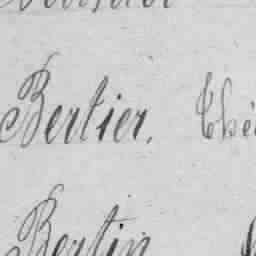 Bertier. Thé
Bertin